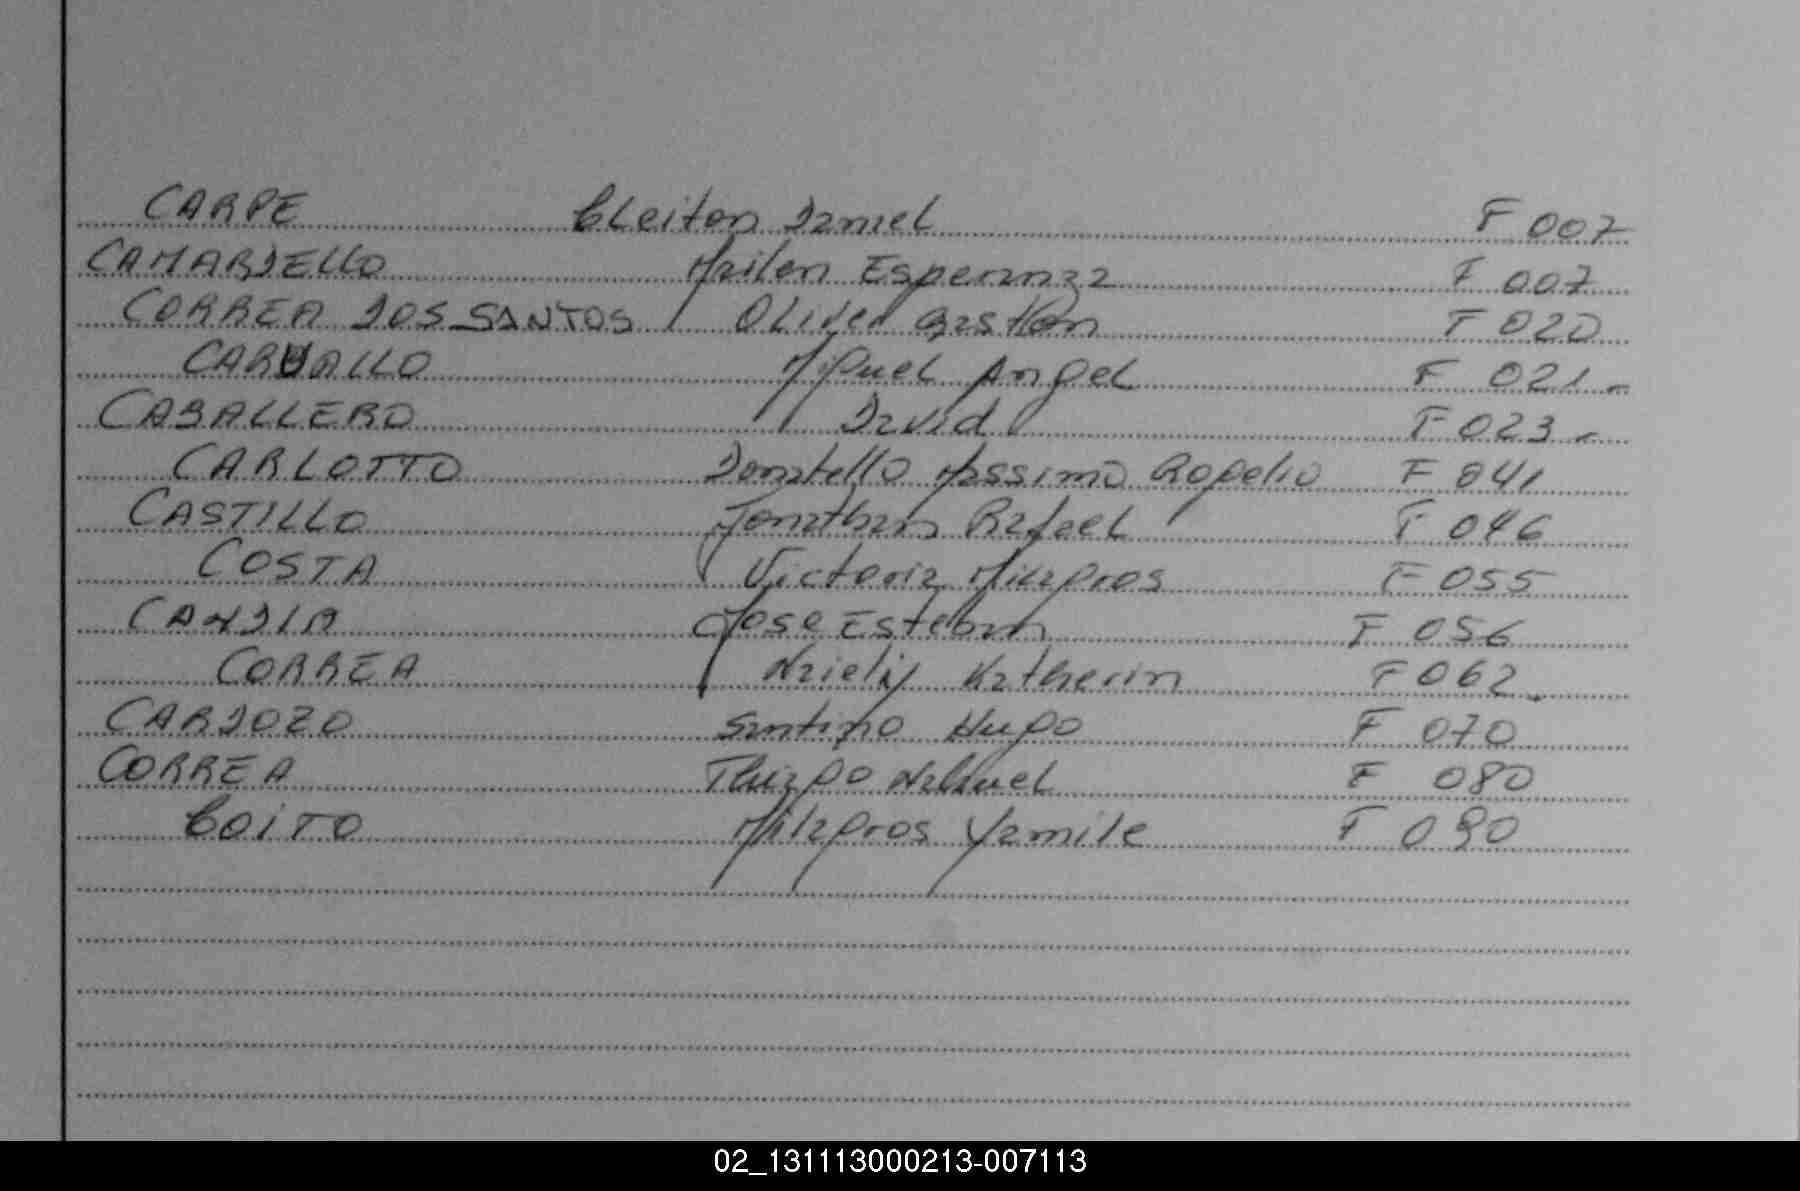 CARPE Cleiton Daniel F 007
CAMARDELLO Mailen Esperanza F 007
CORREA DOS SANTOS Oliver Gaston F 020
CARVALLO Miguel Angel F 021 -
CABALLERO David F 023 -
CARLOTTO Donatello Massimo Rogelio F 041
CASTILLO Jonathan Rafael F 046
COSTA Victoria Milagros F 055
CANDIA Jose Esteban F 056
CORREA Naiely Katherin F 062
CARDOZO Santino Hugo F 070
CORREA Thiago Nahuel F 080
COITO Milagros Yamile F 090
02_131113000213-007113